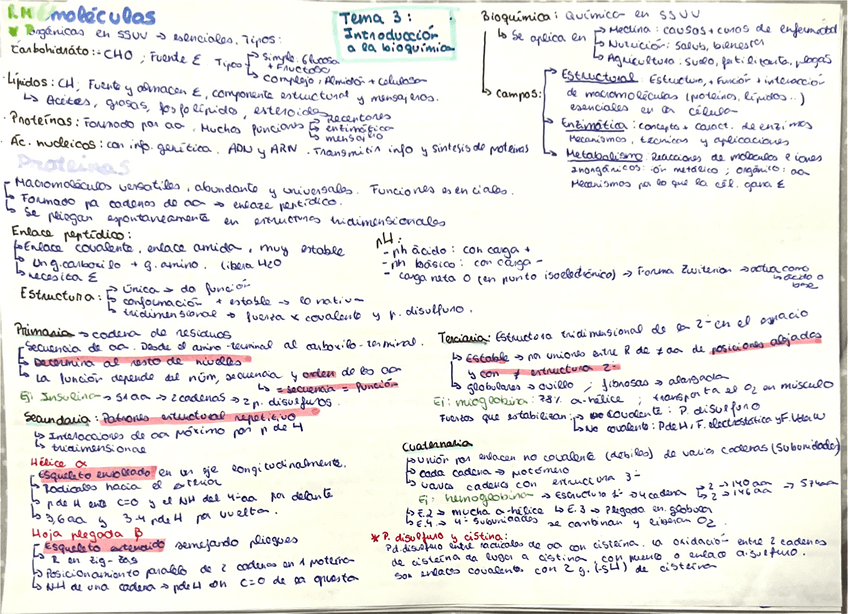 Biomoléculas
Orgánicas en SSVV → esenciales. Tipos:
Carbohidrato: CHO ; Fuente E Tipos
Simple: Glucosa + Fructosa
Complejo: Almidón + celulosa
Lípidos: CH; Fuente y almacen E, componente estructural y mensajeros.
Aceites, grasas, fosfolípido, esteroides
Proteínas: Formado por aa. Muchas funciones
Receptores
enzimática
mensajero
Ác. nucleicos: con info. genética. ADN y ARN. Transmitir info y síntesis de proteínas
Tema 3:
Introducción
a la bioquímica
Bioquímica: Química en SSVV
Se aplica en
Medicina: causas + curas de enfermedad
Nutrición: Salud, bienestar
Agricultura: suelo, fertilizante, plagas
Campos:
Estructural Estructura, + Función + interacción
de macromoléculas (proteínas, lípidos..)
esenciales en la célula
Enzimática: concepto + caract. de enzimas
Mecanismos, técnicas y aplicaciones
Metabolismo. Reacciones de moléculas e iones
Inorgánicos: ión metálico; orgánico: aa
Mecanismos por lo que la cél. gana E
Proteínas
Macromoléculas versátiles, abundante y universales. Funciones esenciales.
Formado pa cadenas de aa → enlace peptídico.
Se pliegan espontaneamente en estructuras tridimensionales
Enlace peptídico:
Enlace covalente, enlace amida, muy estable
Un g. carboxilo + g. amino. libera H2O
necesita E
pH:
- ph ácido: con carga +
- ph básico: con carga -
- carga neta 0 (en punto isoelectrónico) → Forma Zwiterion → actúa como ácido o base
Estructura:
Única → da función
conformación + estable → la nativa
tridimensional → fuerza x covalente y p. disulfuro.
Primaria → cadena de residuos
Secuencia de aa. Desde el amino-terminal al carboxilo-terminal.
Determina al resto de niveles
La función depende del núm, secuencia y orden de los aa
≠ secuencia = función
Ej: Insulina → 51 aa → 2 cadenas → 2 p. disulfuros.
Secundaria: Patrones estructural repetitivo
Interacciones de aa próximo por p de H
tridimensional
Hélice α
Esqueleto enrollado en un eje longitudinalmente.
Radicales hacia el exterior
p de H ente C=O y el NH del 4º aa por delante
3,6 aa y 3-4 p de H por vuelta.
Hoja plegada β
Esqueleto extendido semejando pliegues
R en zig-zag
Posicionamiento paralelo de 2 cadenas en 1 proteína
NH de una cadena → p de H con C=O de la opuesta
Terciaria: Estructura tridimensional de la 2ª en el espacio
Estable → por uniones entre R de ≠ aa de posiciones alejados
y con ≠ estructura 2ª
globulares → ovillo ; fibrosas → alargada
Ej: mioglobina: 78% α-hélice ; transporta el O2 en músculo
Fuerzas que estabilizan:
Covalente: P. disulfuro
No covalente: P de H, F. electrostática y F. V.d.W
Cuaternaria
Unión por enlaces no covalente (débiles) de varias cadenas (subunidades)
cada cadena → protómero
varias cadenas con estructura 3ª
Ej: hemoglobina → Estructura 1ª → 4 cadena
2 → 140 aa
2 → 146 aa
→ 574 aa
E.2 → mucha α-hélice E.3 → Plegada en globular
E.4 → 4 subunidades se cambian y liberan O2.
* P. disulfuro y cistina:
P. disulfuro entre radicales de aa con cisteína. la oxidación entre 2 cadenas
de cisteína da lugar a cistina con puente o enlace disulfuro.
Son enlaces covalentes con 2 g. (-SH) de cisteína